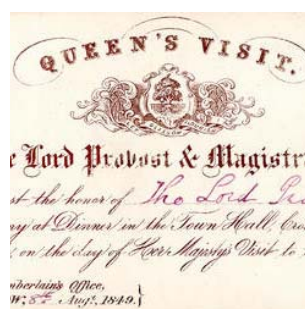 QUEEN'S VISIT.
e Lord Provost & Magistr
st the honor of The Lord Pro
ny at Dinner in the Town Hall, Cro
, on the day of Her Majesty's Visit to
mberlain's Office,
W, 8th Augt. 1849.}